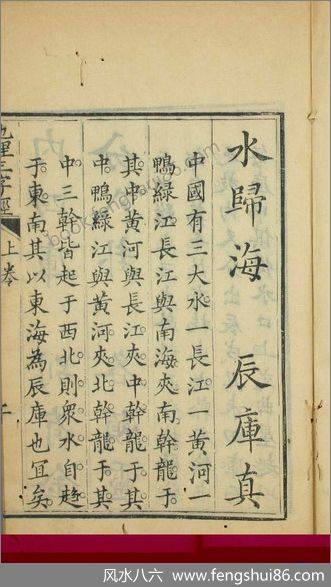 水歸海 辰庫真
中國有三大水一長江一黃河一
鴨綠江長江與南海夾南幹龍于
其中黃河與長江夾中幹龍于其
中鴨綠江與黃河夾北幹龍于其
中三幹皆起于西北則衆水自趋
于東南其以東海為辰庫也宜矣
地理三字經 上卷
风水八六 www.fengshui86.com